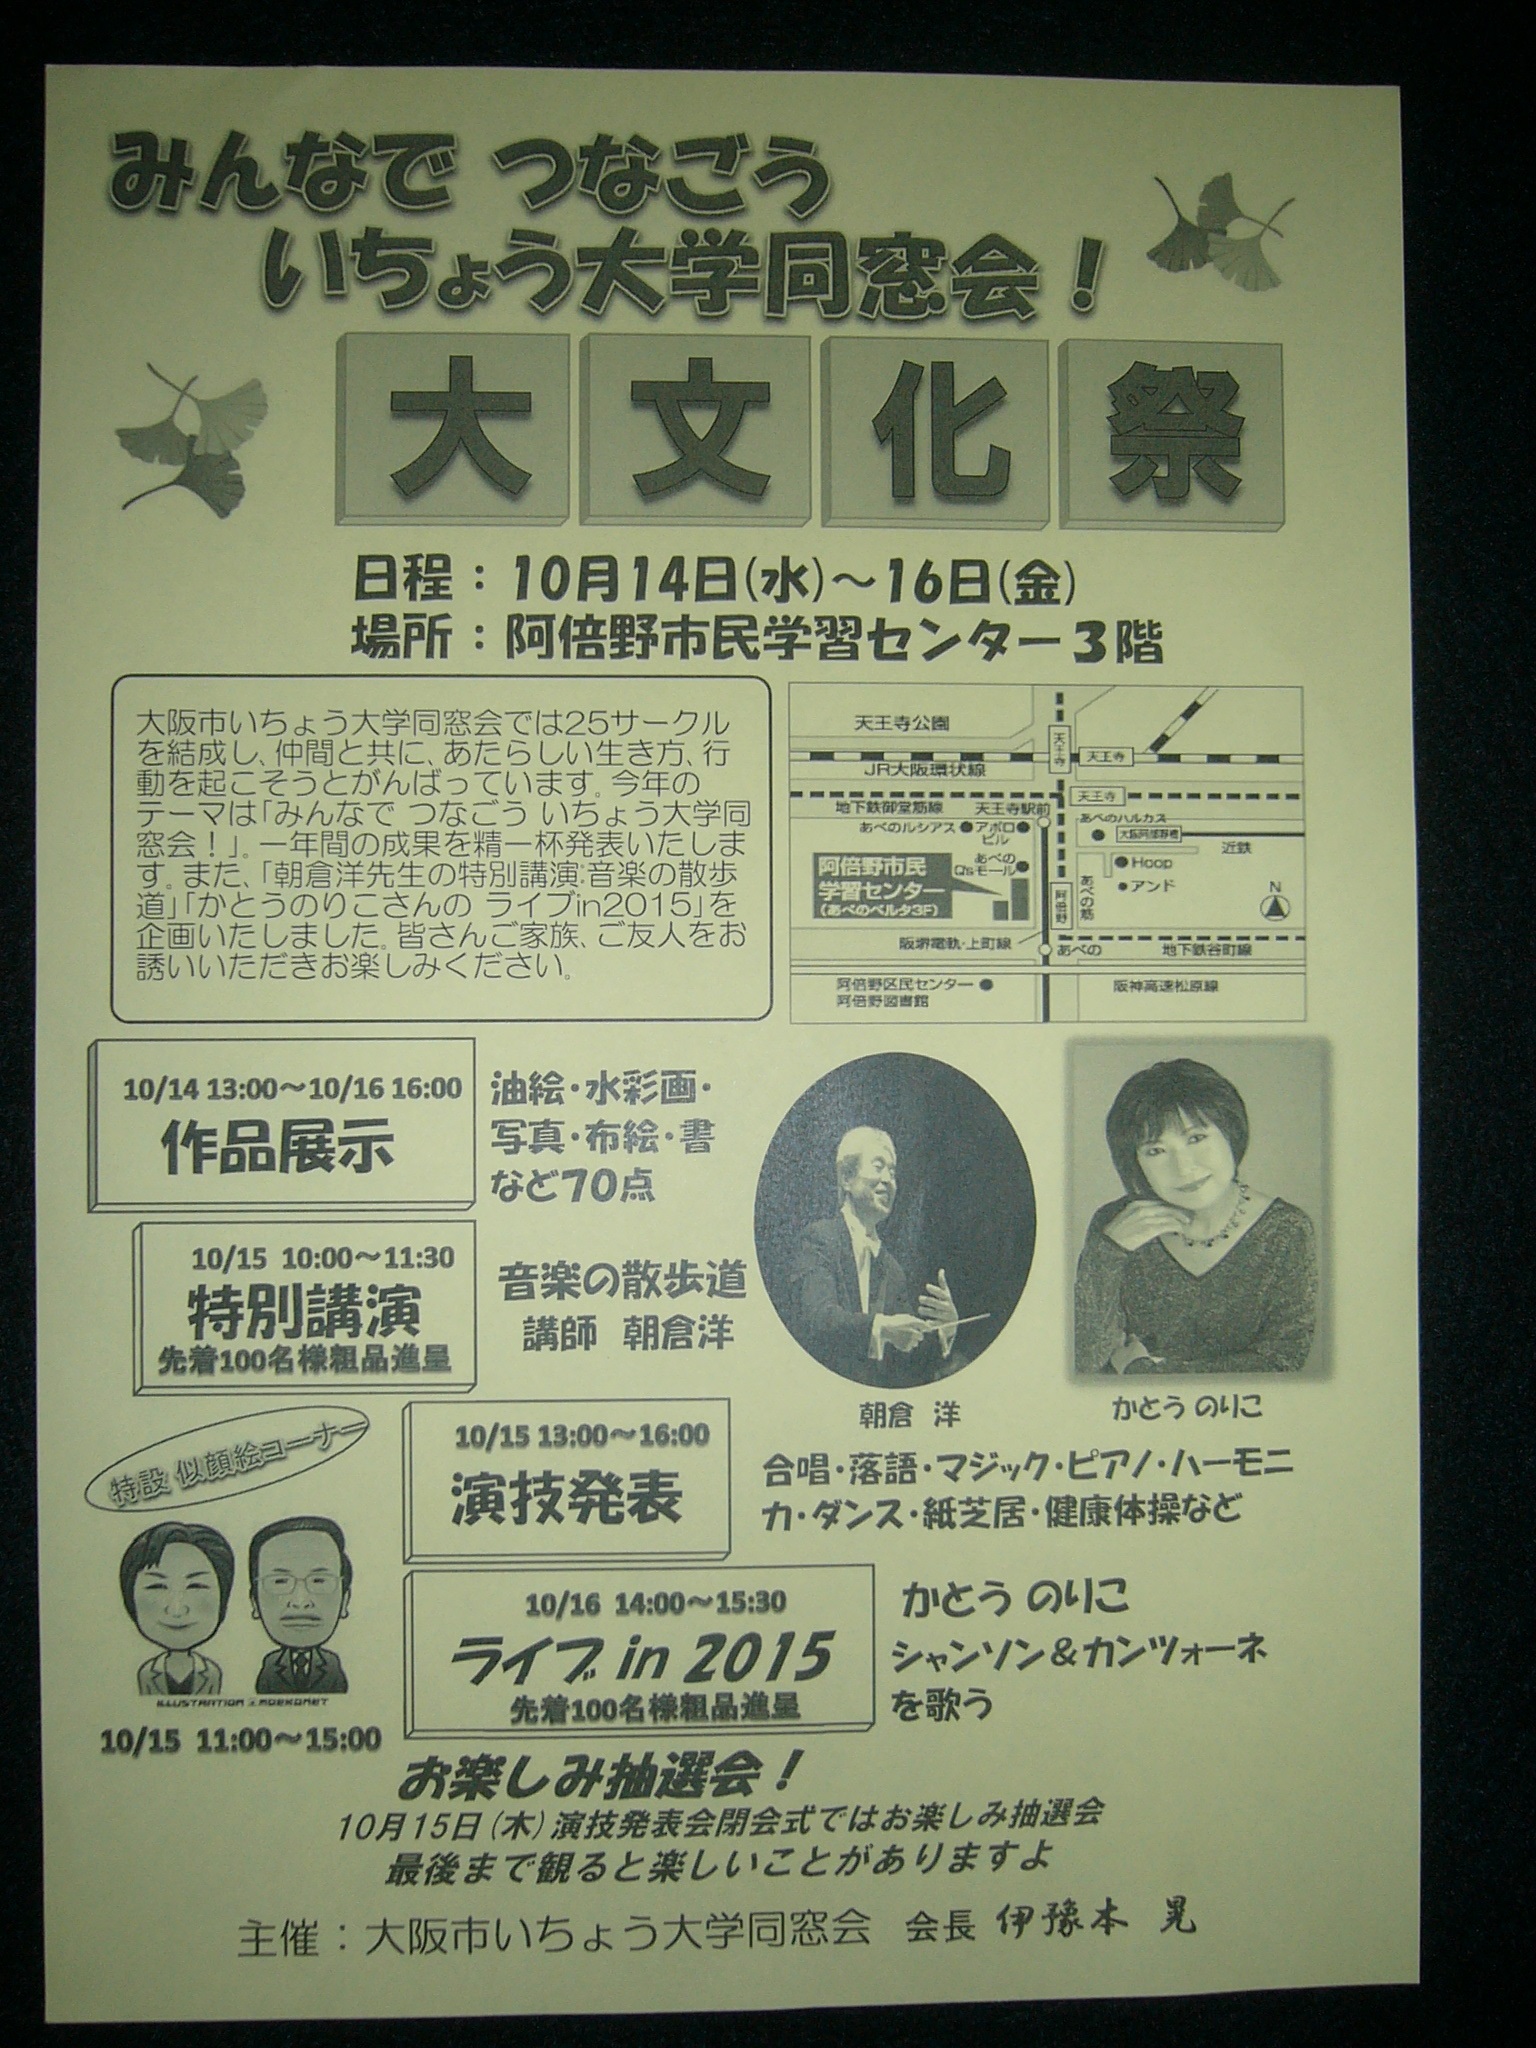 みんなで つなごう
いちょう大学同窓会！
大文化祭
日程：10月14日(水)～16日(金)
場所：阿倍野市民学習センター3階
大阪市いちょう大学同窓会では25サークル
を結成し、仲間と共に、あたらしい生き方、行
動を起こそうとがんばっています。今年の
テーマは「みんなで つなごう いちょう大学同
窓会！」。一年間の成果を精一杯発表いたしま
す。また、「朝倉洋先生の特別講演:音楽の散歩
道」「かとうのりこさんの ライブin2015」を
企画いたしました。皆さんご家族、ご友人をお
誘いいただきお楽しみください。
天王寺公園
天王寺
天王寺
JR大阪環状線
地下鉄御堂筋線
天王寺駅前
天王寺
あべのルシアス
アポロ
ビル
あべのハルカス
大阪阿部野橋
近鉄
阿倍野市民
学習センター
(あべのベルタ3F)
あべの
Q'sモール
Hoop
アンド
阿倍野
あべの筋
N
阪堺電軌・上町線
あべの
地下鉄谷町線
阿倍野区民センター
阿倍野図書館
阪神高速松原線
10/14 13:00～10/16 16:00
作品展示
油絵・水彩画・
写真・布絵・書
など70点
10/15 10:00～11:30
特別講演
先着100名様粗品進呈
音楽の散歩道
講師 朝倉洋
朝倉 洋
かとう のりこ
特設 似顔絵コーナー
ILLUSTRATION
MOEKONET
10/15 11:00～15:00
10/15 13:00～16:00
演技発表
合唱・落語・マジック・ピアノ・ハーモニ
カ・ダンス・紙芝居・健康体操など
10/16 14:00～15:30
ライブ in 2015
先着100名様粗品進呈
かとう のりこ
シャンソン＆カンツォーネ
を歌う
お楽しみ抽選会！
10月15日(木)演技発表会閉会式ではお楽しみ抽選会
最後まで観ると楽しいことがありますよ
主催：大阪市いちょう大学同窓会 会長 伊豫本 晃